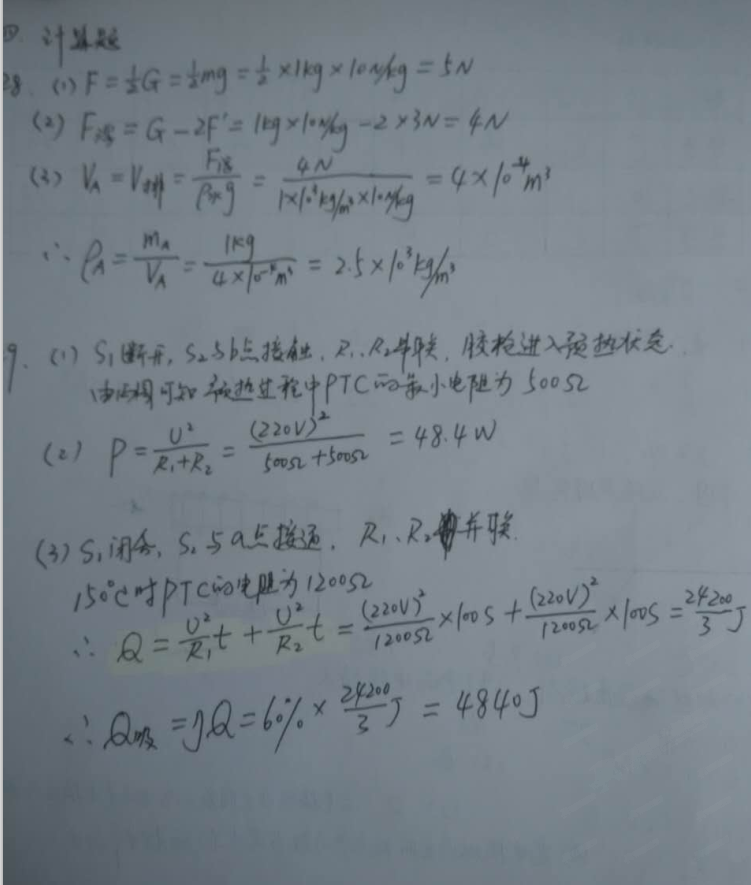 四. 计算题
28. (1) F = ½G = ½mg = ½ × 1kg × 10N/kg = 5N
(2) F浮 = G - 2F' = 1kg × 10N/kg - 2 × 3N = 4N
(3) V_A = V排 = F浮/ρ水g = 4N/(1×10³kg/m³×10N/kg) = 4×10⁻⁴m³
∴ ρ_A = m_A/V_A = 1kg/(4×10⁻⁴m³) = 2.5×10³kg/m³
9. (1) S₁断开, S₂与b点接触, R₁、R₂串联, 胶枪进入预热状态.
由图可知 预热过程中PTC的最小电阻为 500Ω
(2) P = U²/(R₁+R₂) = (220V)²/(500Ω+500Ω) = 48.4W
(3) S₁闭合, S₂与a点接通, R₁、R₂并联.
150℃时PTC的电阻为1200Ω
∴ Q = U²/R₁ t + U²/R₂ t = (220V)²/1200Ω ×100S + (220V)²/1200Ω ×100S = 24200/3 J
∴ Q吸 = ηQ = 60% × 24200/3 J = 4840J